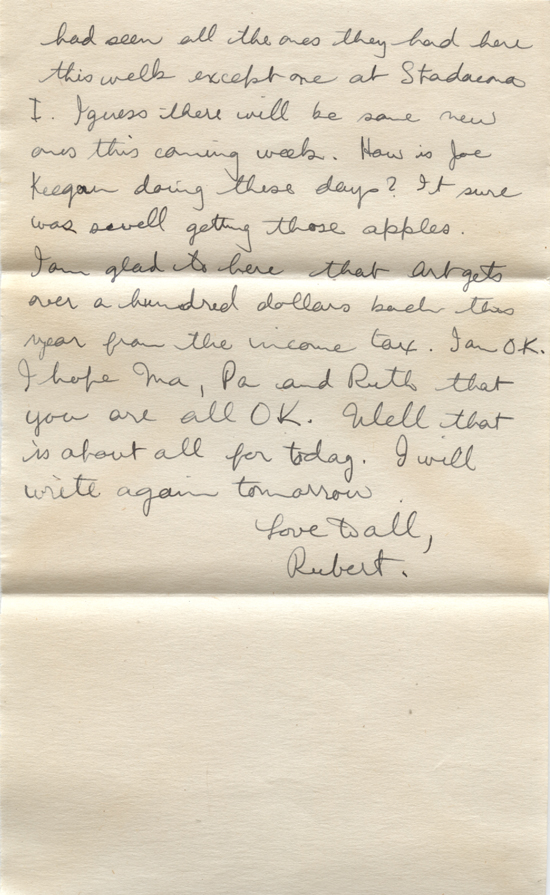 had seen all the ones they had here
this week except one at Stadacona
I. I guess there will be some new
ones this coming week. How is Joe
Keegan doing these days? It sure
was swell getting those apples.
I am glad to here that Art gets
over a hundred dollars back this
year from the income tax. I am OK.
I hope Ma, Pa and Ruth that
you are all OK. Well that
is about all for today. I will
write again tomorrow.
Love to all,
Rubert.